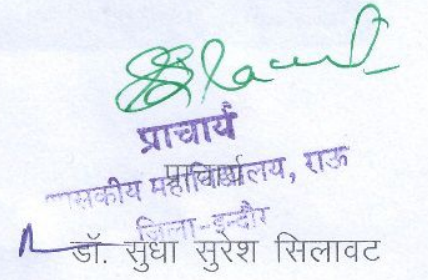 प्राचार्य
प्राचार्य
शासकीय महाविद्यालय, राऊ
जिला-इन्दौर
डॉ. सुधा सुरेश सिलावट